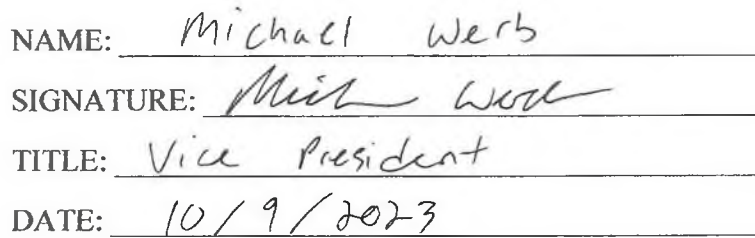 NAME: Michael Werb
SIGNATURE: Mich Werb
TITLE: Vice President
DATE: 10/9/2023